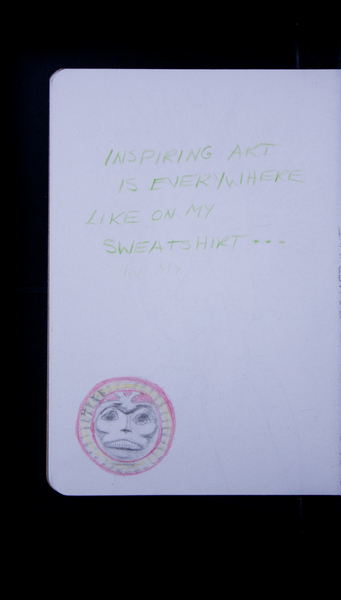 INSPIRING ART
IS EVERYWHERE
LIKE ON MY
SWEATSHIRT...
IN MY